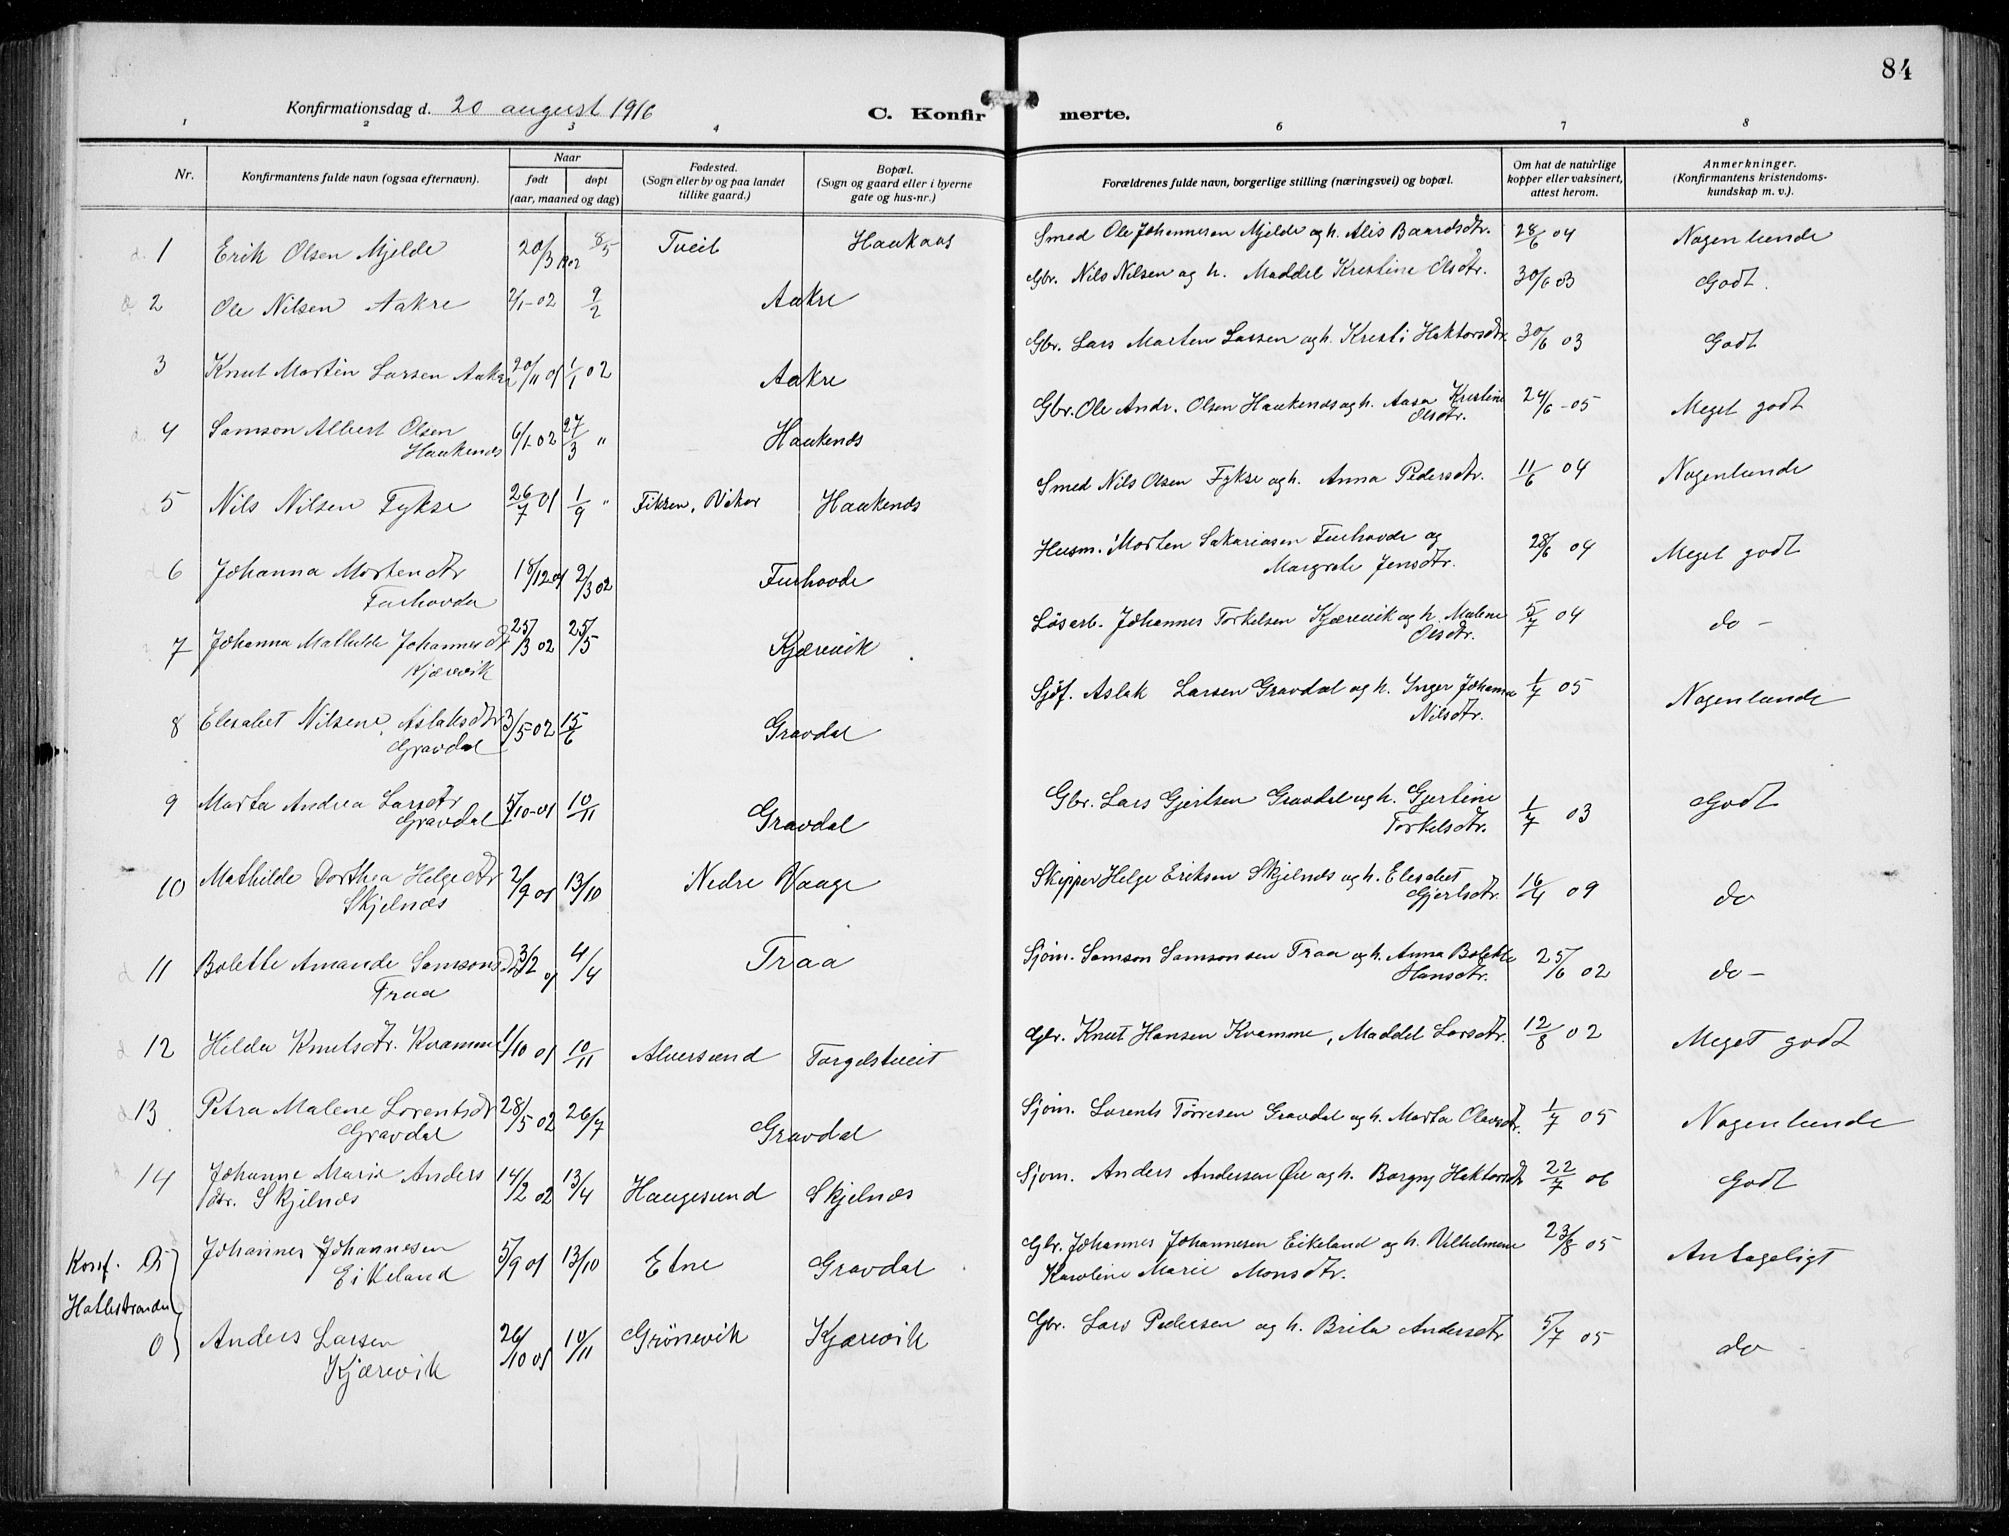 84
Konfirmationsdag d. 20 august 1916
C. Konfirmerte.
1 2 3 4 6 7 8
Nr.
Konfirmantens fulde navn (ogsaa efternavn).
Naar
født døpt
(aar, maaned og dag)
Fødested.
(Sogn eller by og paa landet
tillike gaard.)
Bopæl.
(Sogn og gaard eller i byerne
gate og hus-nr.)
Forældrenes fulde navn, borgerlige stilling (næringsvei) og bopæl.
Om hat de naturlige
kopper eller vaksinert,
attest herom.
Anmerkninger.
(Konfirmantens kristendoms-
kundskap m. v.).
1 Erik Olsen Mjelde 20/3 1902 8/5 Tveit Haukaas Smed Ole Johannesen Mjelde og h. Alis Baardsdtr. 28/6 04 Nogenlunde
2 Ole Nilsen Aakre 2/1-02 9/2 Aakre Gbr. Nils Nilsen og h. Maddel Kristine Olsdtr. 30/6 03 Godt.
3 Knut Martin Larsen Aakre 20/11 01 1/1 02 Aakre Gbr. Lars Marten Larsen og h. Kristi Haktorsdtr. 30/6 03 Godt
4 Samson Albert Olsen
Haukenæs 6/1-02 27/3 " Haukenæs Gbr. Ole Andr. Olsen Haukenæs og h. Aasa Kristine
Olsdtr. 24/6-05 Meget godt
5 Nils Nilsen Fykse 26/7 01 1/9 " Fiksen, Vikør Haukenæs Smed Nils Olsen Fykse og h. Anna Pedersdtr. 11/6 04 Nogenlunde
6 Johanna Mortensdtr
Furhovde 18/12 01 2/3 02 Furhovde Husm. Morten Sakariasen Furhovde og
Margrete Jensdtr. 28/6 04 Meget godt
7 Johanna Mathilde Johannesdtr
Kjærevik 25/3 02 25/5 Kjærevik Løsarb. Johannes Torkelsen Kjærevik og h. Malene
Olsdtr. 5/7 04 do -
8 Elesabet Nilsene Aslaksdtr
Gravdal 3/5-02 15/6 Gravdal Sjöf. Aslak Larsen Gravdal og h. Inger Johanna
Nilsdtr. 1/7 05 Nogenlunde
9 Marta Andrea Larsdtr
Gravdal 5/10-01 10/11 Gravdal Gbr. Lars Gjertsen Gravdal og h. Gjertine
Torkelsdtr. 1/7 03 Godt
10 Mathilde Dorthea Helgesdtr
Skjelnæs 2/9 01 13/10 Nedre Vaage Skipper Helge Eriksen Skjelnæs og h. Elesabet
Gjertsdtr. 16/4 09 do
11 Bolette Amande Samsonsdtr
Traa 3/2 01 4/4 Traa Sjøm. Samson Samsonsen Traa og h. Anna Bolette
Hansdtr. 25/6 02 do -
12 Helda Knutsdtr. Kvamme 1/10 01 10/11 Alversund Torgelstveit Gbr. Knut Hansen Kvamme, Maddel Larsdtr. 12/8 02 Meget godt
13 Petra Malene Lorentsdtr
Gravdal 28/5 02 26/7 Gravdal Sjøm. Lorents Tørresen Gravdal og h. Marta Olavsdtr. 1/7 05 Nogenlunde
14 Johanne Marie Anders
dtr. Skjelnæs 14/2 02 13/4 Haugesund Skjelnæs Sjøm. Anders Andersen Øie og h. Borgny Haktorsdtr 22/7 06 Godt
Konf. Johannes Johannesen
Eikeland 5/9 01 13/10 Etne Gravdal Gbr. Johannes Johannesen Eikeland og h. Vilhelmine
Karoline Marie Monsdtr. 23/8 05 Antageligt
Hatlestranden
0 Anders Larsen
Kjærevik 26/10 01 10/11 Grönevik Kjærevik Gbr. Lars Pedersen og h. Brita Andersdtr 5/7 05 do